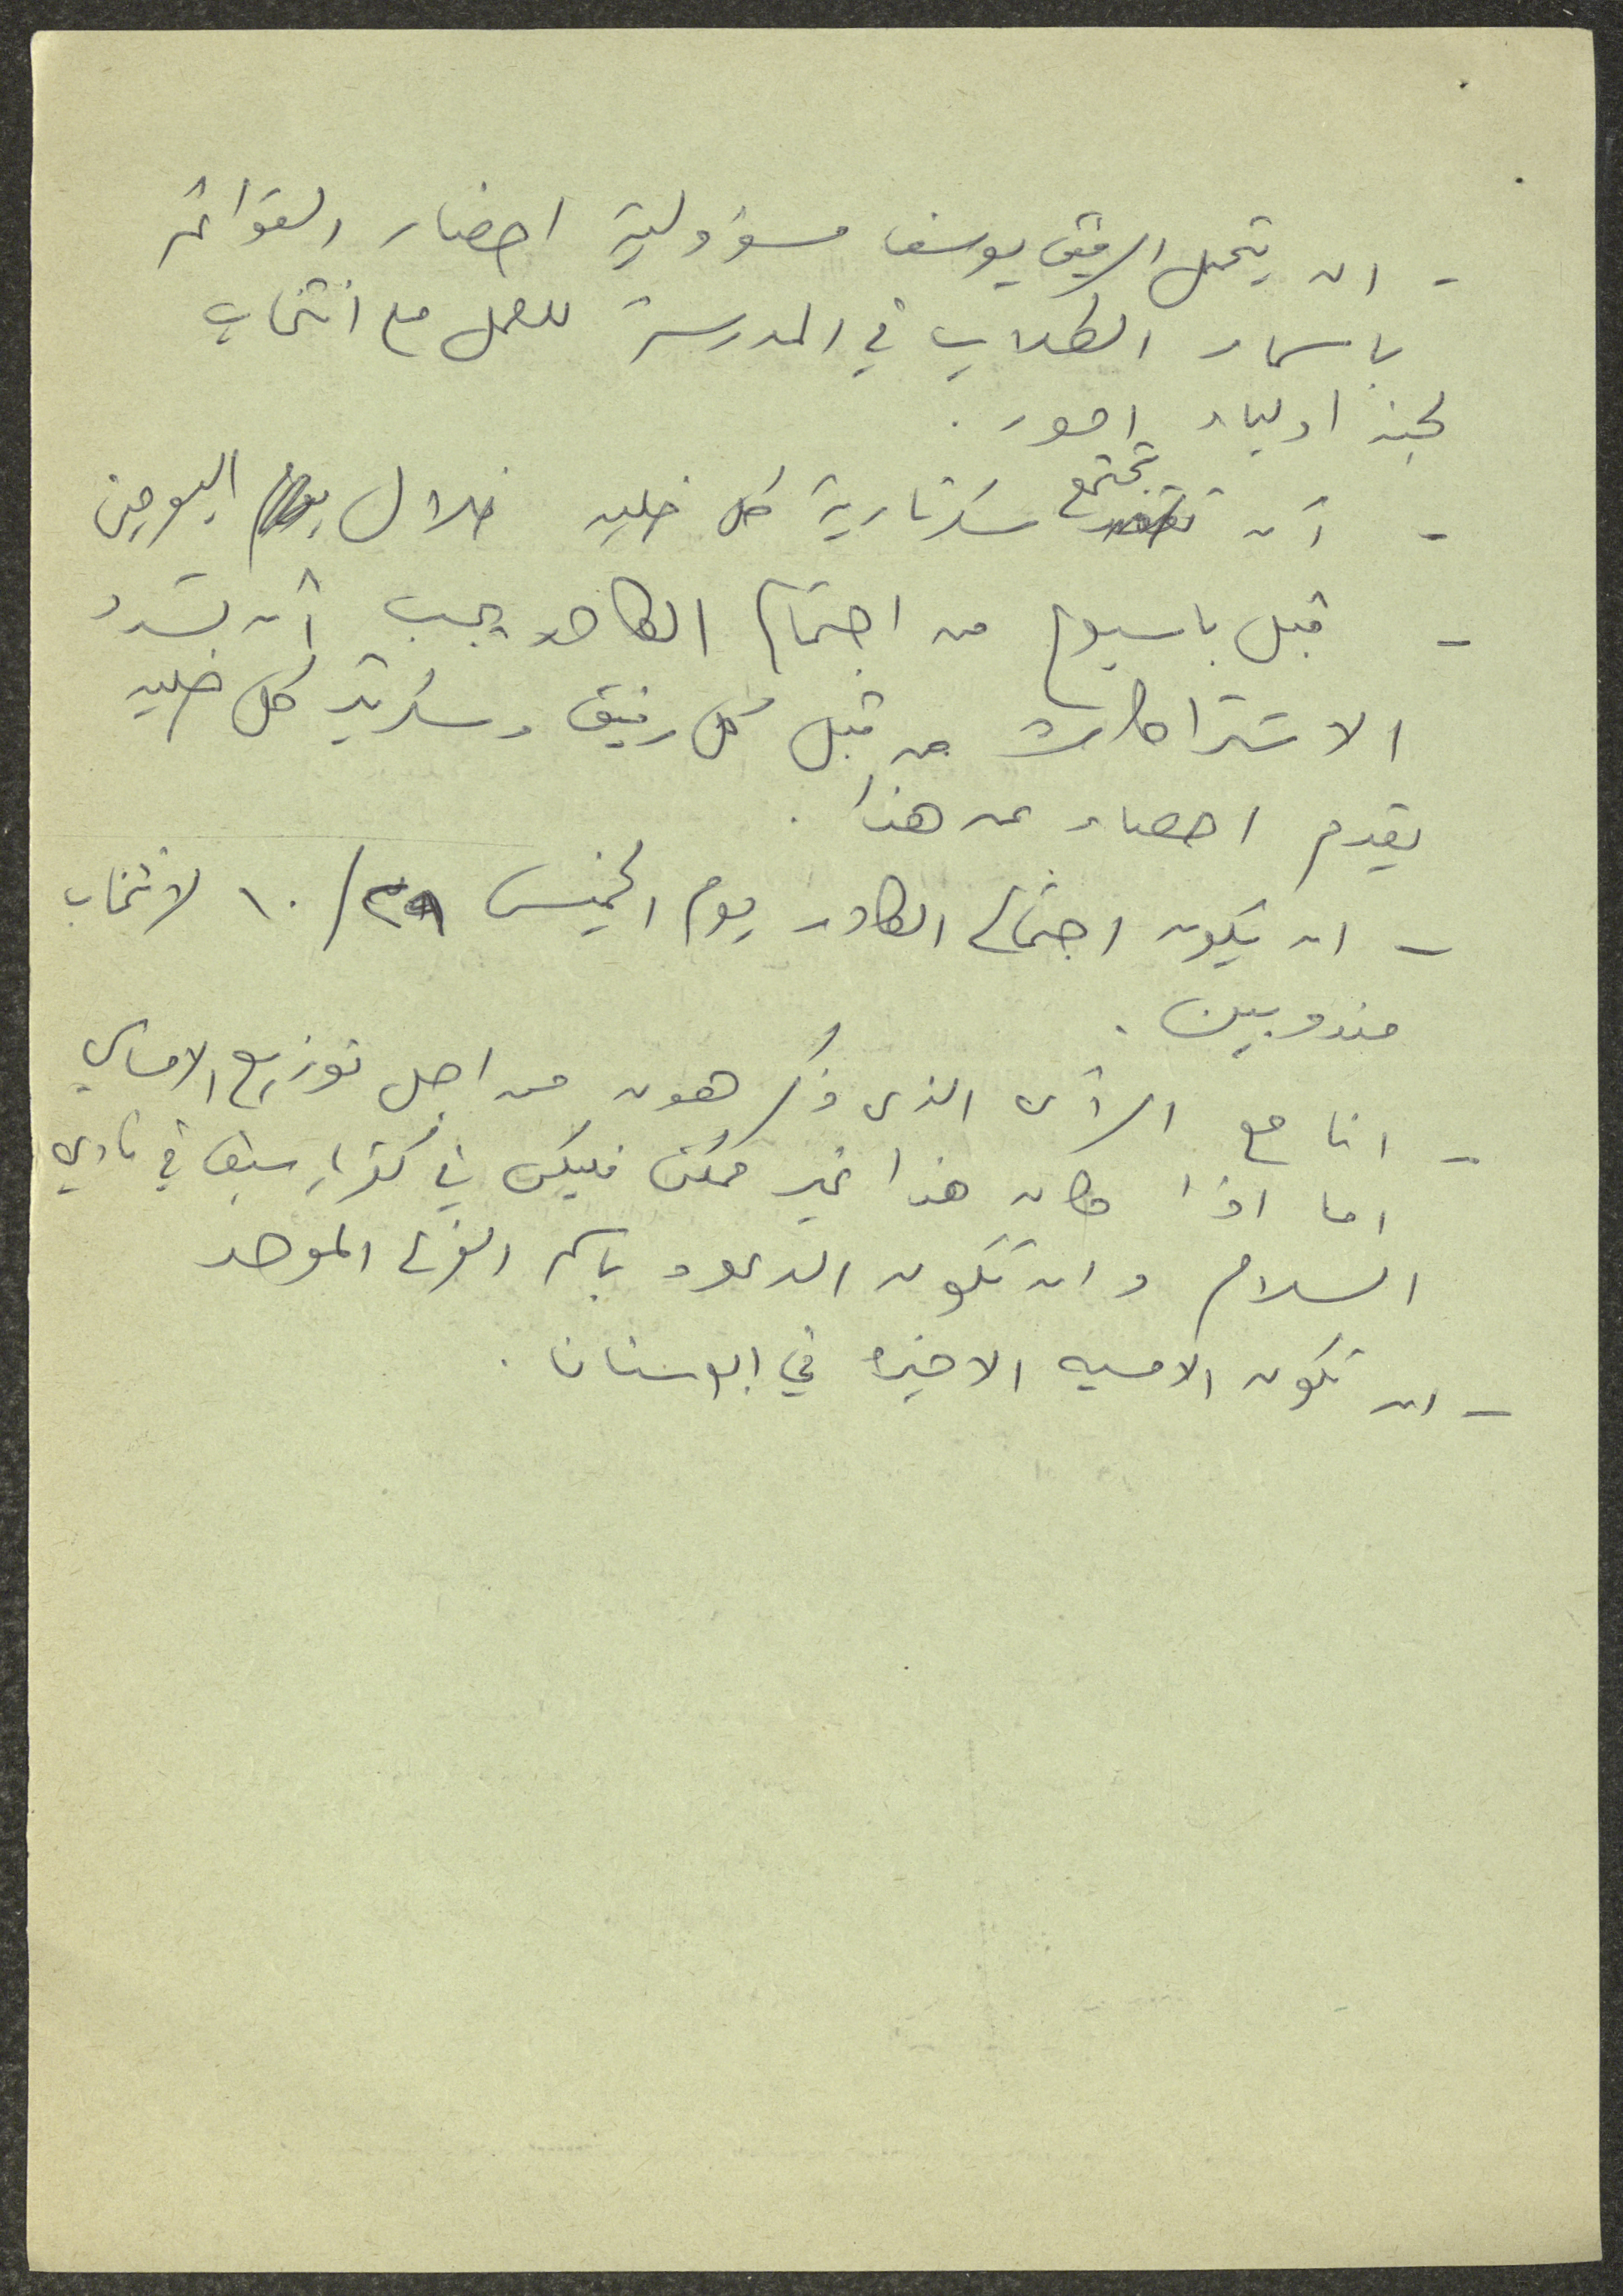 - ان يتحمل الرفيق يوسف مسؤولية احضار القوائم
باسماء الطلاب في المدرسة للعمل مع انتخاب
لجنة اولياء امور .
- أن تجتمع سكرتارية كل خليه خلال اليومين
- قبل باسبوع من اجتماع الكادر يجب أن تسدد
الاشتراكات من قبل كل رفيق وسكرتير كل خليه
يقدم احصاء عن هذا .
- ان يكون اجتماع الكادر يوم الخميس ٢٩/١٠ لانتخاب
مندوبين .
- انا مع الرأي الذي ذكر هون من اجل توزيع الاماسي
اما اذا كان هذا غير ممكن فليكن في كفر ياسيف في نادي
السلام وان تكون الدعوه باسم الفرع الموحد
- ان تكون الامسيه الاخيره في ابو سنان .